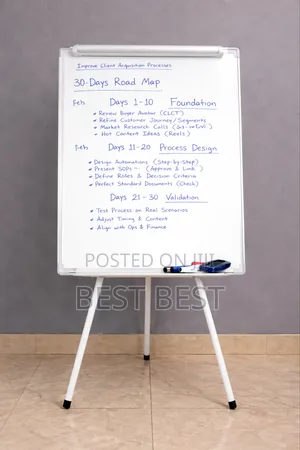 Improve Client Acquisition Processes
30-Days Road Map
Feb Days 1-10 Foundation
Review Buyer Avatar (CLCT)
Refine Customer Journey/Segments
Market Research Calls
Hot Content Ideas (Reels)
Feb Days 11-20 Process Design
Design Automations (Step-by-Step)
Present SOPs - (Approve & Link)
Define Roles & Decision Criteria
Perfect Standard Documents (Check)
Days 21-30 Validation
Test Process on Real Scenarios
Adjust Timing & Content
Align with Ops & Finance
POSTED ON
BEST BEST